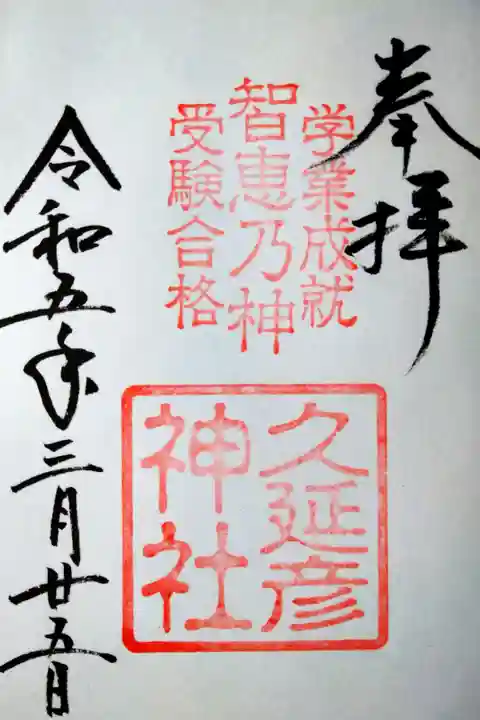 奉拝
学業成就
智恵乃神
受験合格
久延彦
神社
令和五年三月廿五日